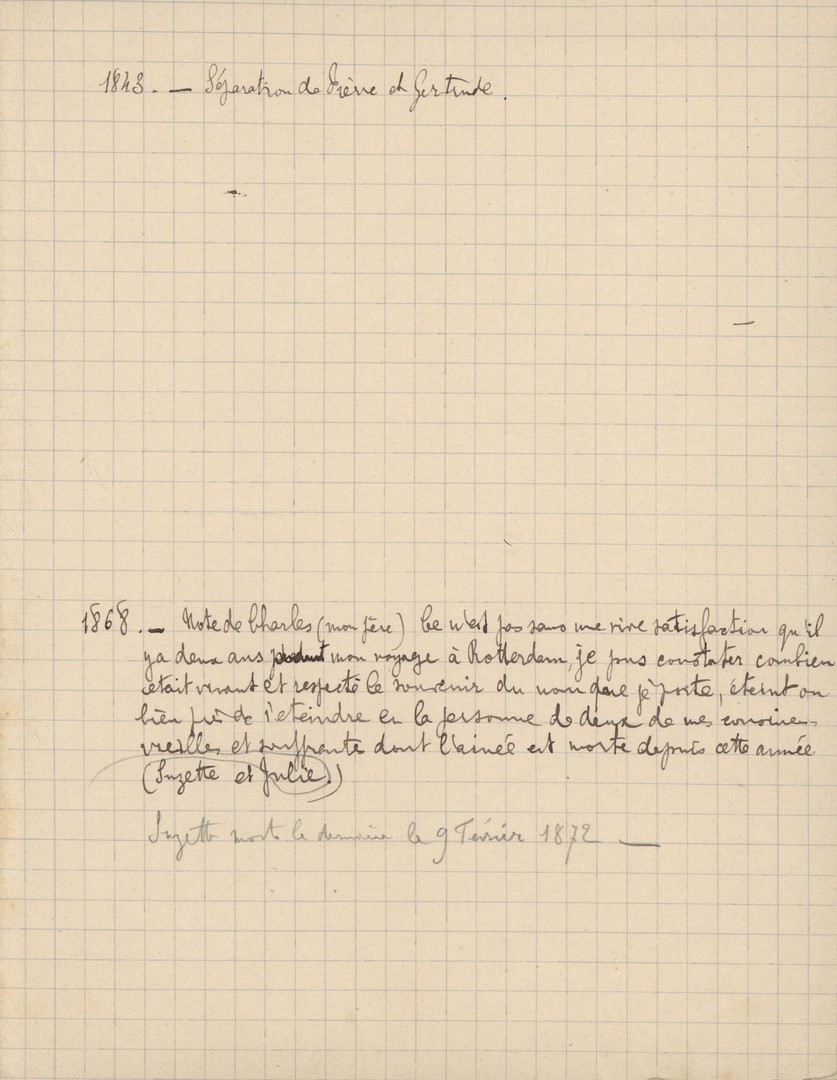 1843. — Séparation de Pierre et Gertrude.
1868. — Note de Charles (mon père) Ce n'est pas sans une vive satisfaction qu'il
y a deux ans pendant mon voyage à Rotterdam, je pus constater combien
était vivant et respecté le souvenir du nom que je porte, éteint ou
bien près de s'eteindre en la personne de deux de mes cousines
vieilles et souffrante dont l'ainée est morte depuis cette année
(Suzette et Julie.)
Suzette morte la dernière le 9 Février 1872 —